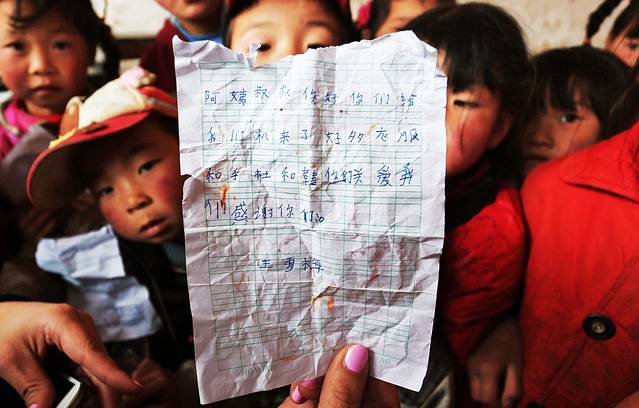 阿姨叔叔你好你们给
我们机来了好多衣服
和手杜和鞋你们关爱我
们感谢你们。
王雪梅